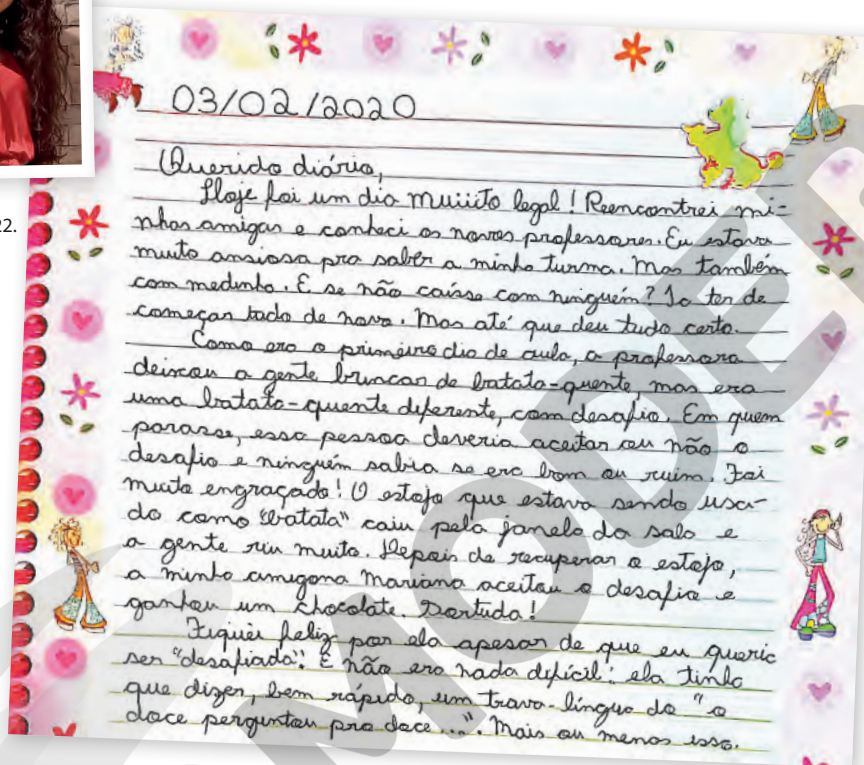 22.
03/02/2020
Querido diário,
Hoje foi um dia muiiito legal! Reencontrei mi-
nhas amigas e conheci os novos professores. Eu estava
muito ansiosa pra saber a minha turma. Mas também
com medinho. E se não caísse com ninguém? Ia ter de
começar tudo de novo. Mas até que deu tudo certo.
Como era o primeiro dia de aula, a professora
deixou a gente brincar de batata-quente, mas era
uma batata-quente diferente, com desafio. Em quem
parasse, essa pessoa deveria aceitar ou não o
desafio e ninguém sabia se era bom ou ruim. Foi
muito engraçado! O estojo que estava sendo usa-
do como "batata" caiu pela janela da sala e
a gente riu muito. Depois de recuperar o estojo,
a minha amigona Mariana aceitou o desafio e
ganhou um chocolate. Sortuda!
Fiquei feliz por ela apesar de que eu queria
ser "desafiada". E não era nada difícil: ela tinha
que dizer, bem rápido, um trava-língua do "o
doce perguntou pro doce...". Mais ou menos isso.
MODER